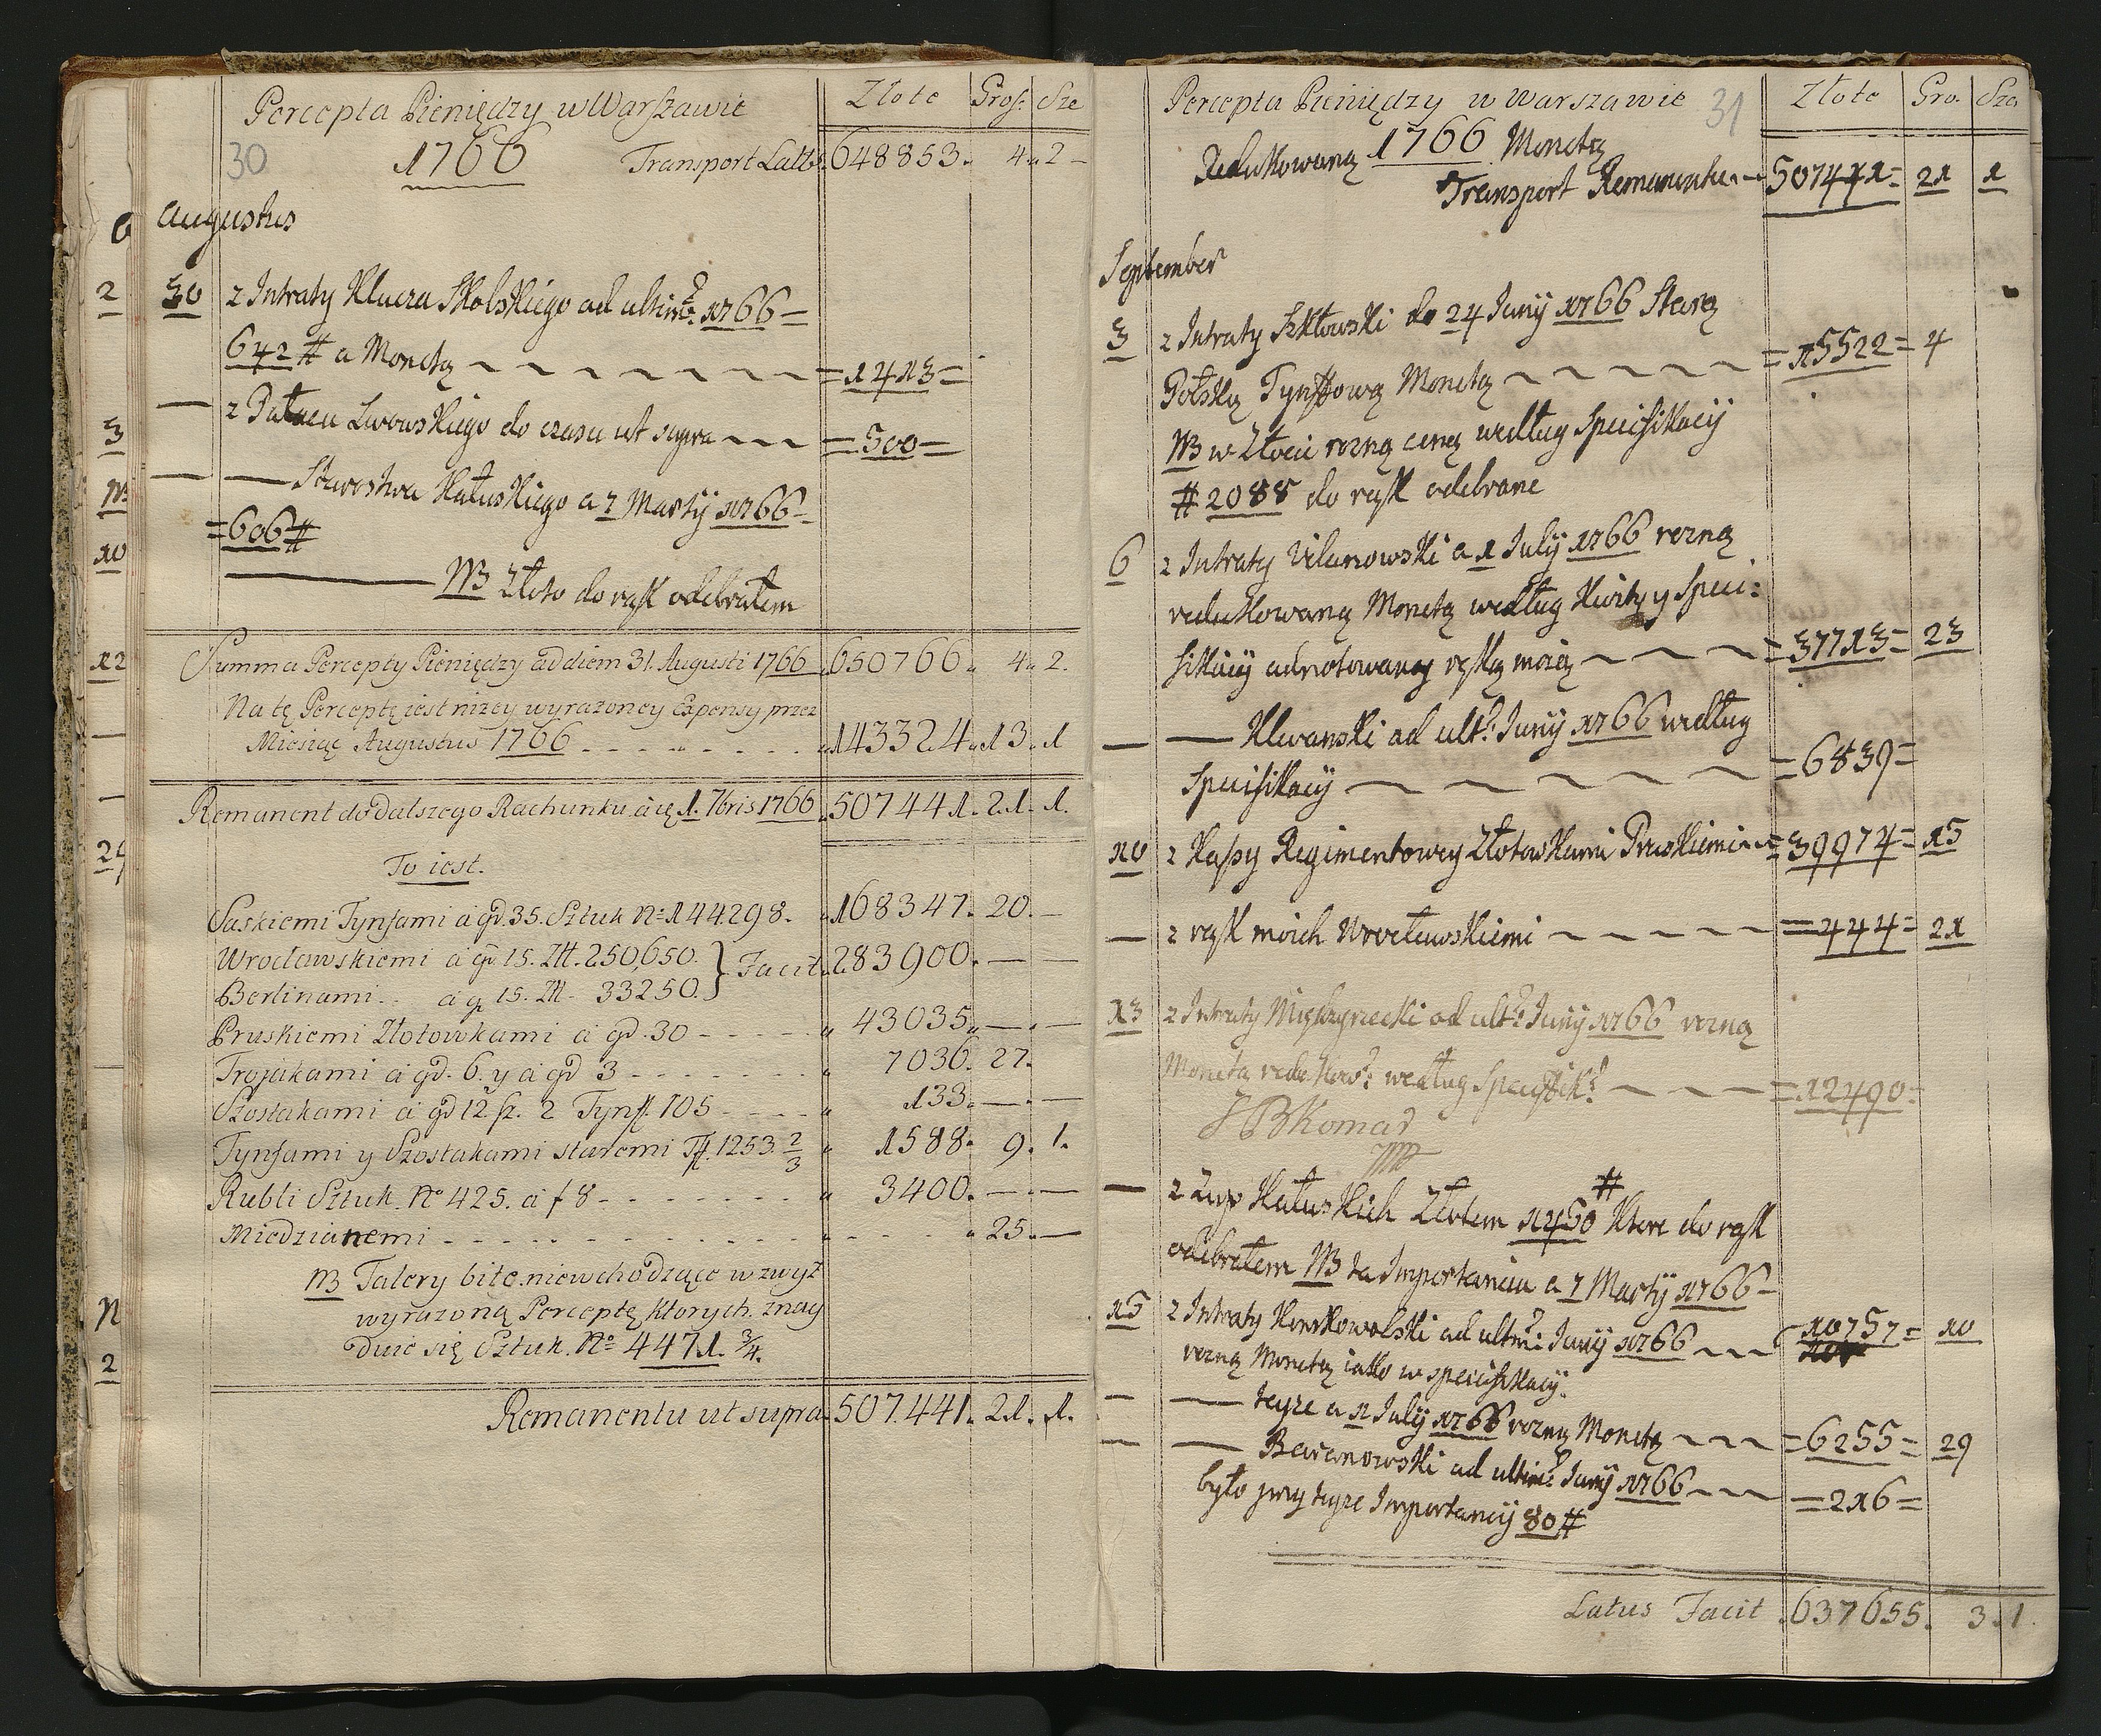 Percepta Pieniędzy w Warszawie Złote Gros: Sze
30 1766 Transport Latus 648853. 4. 2 –
Augustus
30 z Intraty Klucza Skolskiego ad ultim: 1766 =
642 # a Monetą = 1413 =
— z Pałacu Lwowskiego do czasu ut supra = 500 =
— — Starostwa Kałuskiego a 7 Martij 1766 =
= 606 #
— NB Złoto do rąk odebrałem
Summa Percepty Pieniędzy ad diem 31. Augusti 1766 650766. 4. 2.
Na tę Perceptę iest niżey wyrażoney Expensy przez
Miesiąc Augustus 1766 143324. 13. 1
Remanent do dalszego Rachunku à 1. 7bris 1766 507441. 21. 1.
To iest.
Saskiemi Tynfami à gr 35. Sztuk No 144298. 168347. 20. —
Wrocławskiemi à gr 15. Złł. 250,650. } Facit 283900. — —
Berlinami à gr 15. Złł. 33250.
Pruskiemi Złotowkami à gr. 30 43035. — . —
Trojakami à gr. 6. y à gr 3 7036. 27.
Szostakami à gr 12 sz. 2 Tynf. 105 133. — . —
Tynfami y Szostakami staremi Tf. 1253. 2/3 1588. 9. 1.
Rubli Sztuk. No 425. à f 8 3400. — . —
Miedzianemi 25. —
NB Talery bite niewchodzące w zwyż
wyrażoną Perceptę, ktorych znay
duie się Sztuk. No 4471. 3/4.
Remanentu ut supra 507.441. 21. 1.
Percepta Pieniędzy w Warszawie 31 Złote Gro. Sze
Redukowaną 1766 Monetą
Transport Remanentu 507441 = 21 1
September
3 z Intraty Szkłowski do 24 Junij 1766 Starą
Polską Tynffową Monetą = 15522 = 4
NB w Złocie rozną ceną według Specifikacij
# 2088 do rąk odebrane
6 z Intraty Wilanowski a 1 Julij 1766 rozną
redukowaną Monetą według Kwitu y Speci:
fikacij adnotowaney ręką moią = 37713 = 23
— — Klewanski ad ult: Junij 1766 według
Specifikacij = 6839 =
10 z Kassy Regimentowey Złotowkami Pruskiemi = 39974 = 15
— z rąk moich Wrocławskiemi = 444 = 21
13 z Intraty Międzyrzecki ad ult: Junij 1766 rozną
Monetą redukow: według Specifik: = 12490 =
J B Komar
— z Zup Kałuskich Złotem 1450 # ktore do rąk
odebrałem NB ta Importancia a 7 Martij 1766 =
15 z Intraty Konskowolski ad ultim: Junij 1766 10757 = 10
rozną Monetą iako w specifikacij.
— — teyze a 1 Julij 1766 rozną Monetą = 6255 = 29
— — Baranowski ad ultim: Junij 1766 = 216 =
było przy teyze Importancij 80 #
Latus Facit 637655. 3. 1.